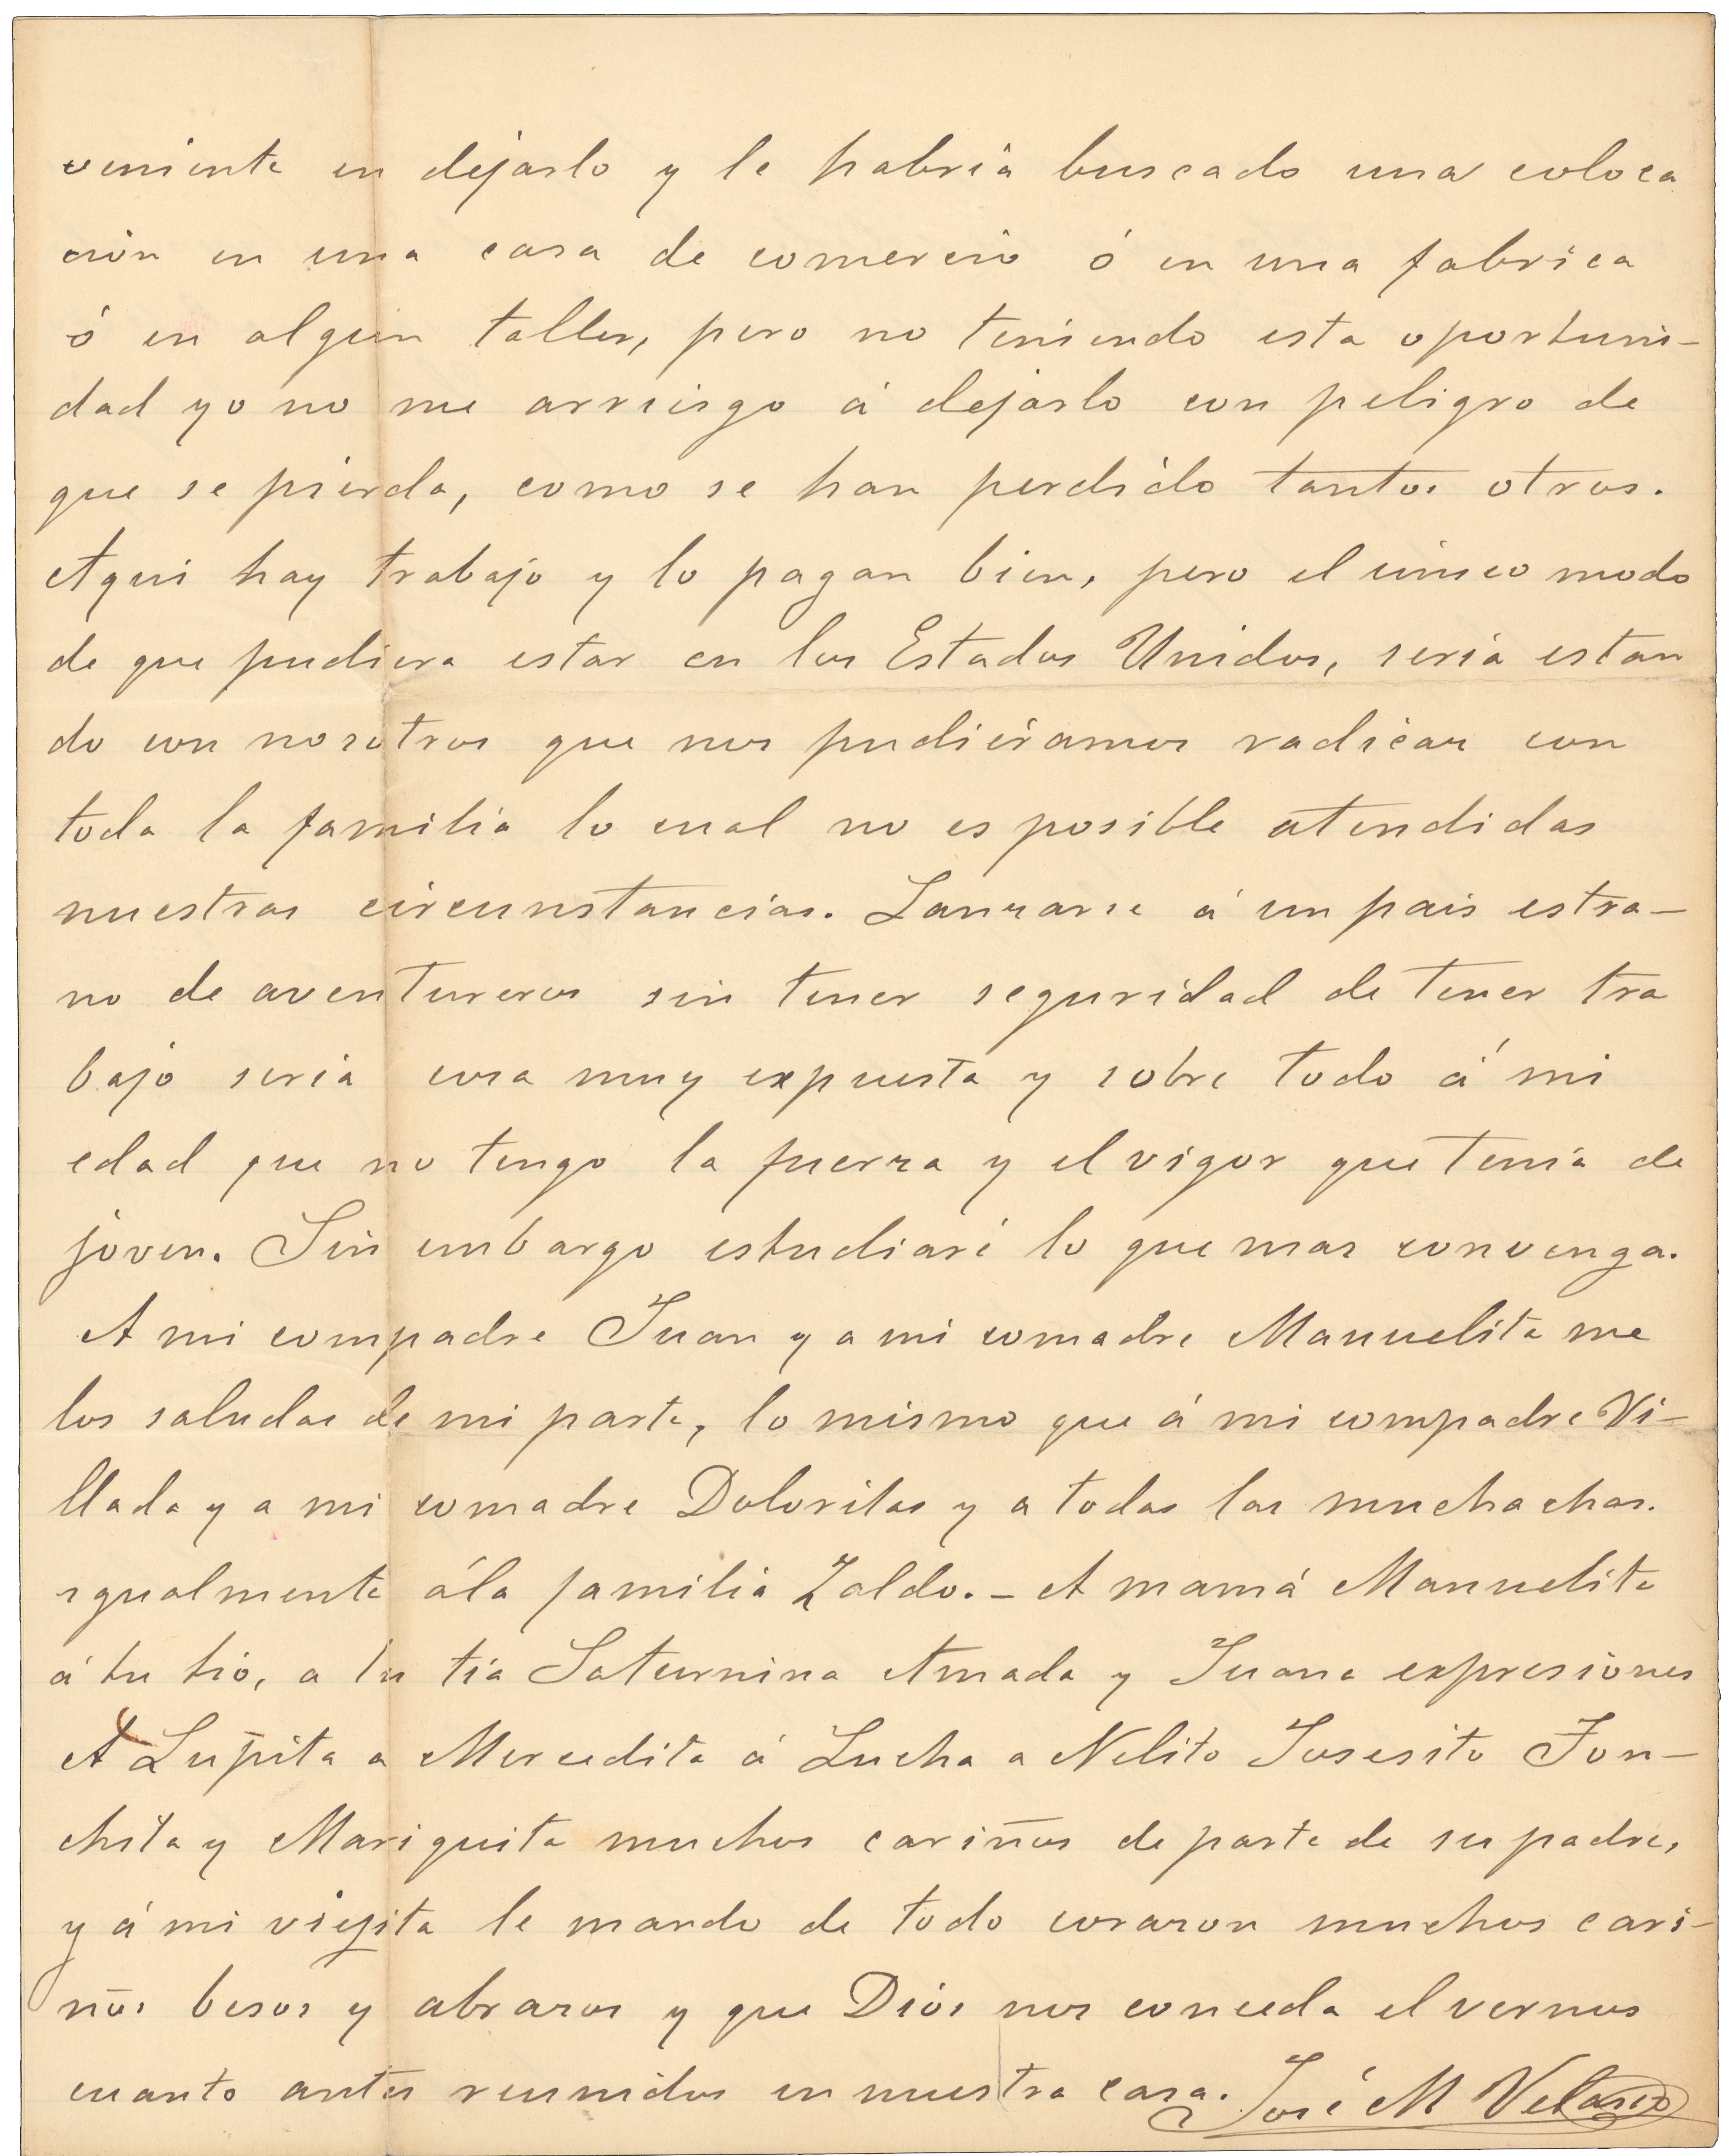 veniente en dejarlo y le habria buscado una coloca
cion en una casa de comercio ó en una fabrica
ó en algun taller, pero no teniendo esta oportuni-
dad yo no me arriesgo á dejarlo con peligro de
que se pierda, como se han perdido tantos otros.
Aqui hay trabajo y lo pagan bien, pero el único modo
de que pudiera estar en los Estados Unidos, seria estan
do con nosotros que nos pudiéramos radicar con
toda la familia lo cual no es posible atendidas
nuestras circunstancias. Lanzarse á un pais estra-
no de aventureros sin tener seguridad de tener tra
bajo seria cosa muy expuesta y sobre todo á mi
edad que no tengo la fuerza y el vigor que tenia de
joven. Sin embargo estudiaré lo que mas convenga.
A mi compadre Juan y a mi comadre Manuelita me
los saludas de mi parte, lo mismo que á mi compadre Vi-
llada y a mi comadre Doloritas y a todas las muchachas.
igualmente á la familia Zaldo. - A mamá Manuelita
á tu tio, a tu tia Saturnina Amada y Juana expresiones
A Lupita a Mercedita á Lucha a Nelito Josesito Jon-
chita y Mariquita muchos cariños de parte de su padre,
y á mi viejita le mando de todo corazon muchos cari-
ños besos y abrazos y que Dios nos conceda el vernos
cuanto antes reunidos en nuestra casa. José M Velasco